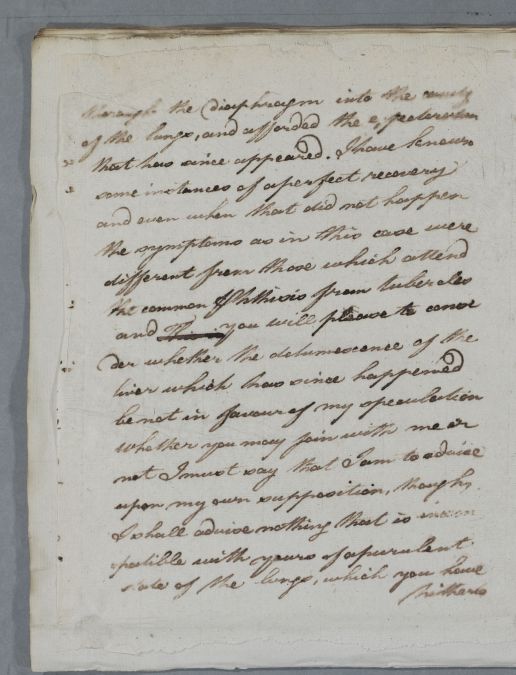 through the Diaphragm into the cavity
of the lungs, and afforded the expectoration
that has since appeared. I have known
some instances of a perfect recovery
and even when that did not happen
the symptoms as in this case were
different from those which attend
the common Phthisis from tubercles
and you will please to consi
der whether the detumescence of the
liver which has since happened
be not in favour of my speculation
Whether you may join with me or
not I must say that I am to advise
upon my own supposition, though
I shall advise nothing that is incom
patible with yours of a purulent
state of the lungs, which you have
hitherto